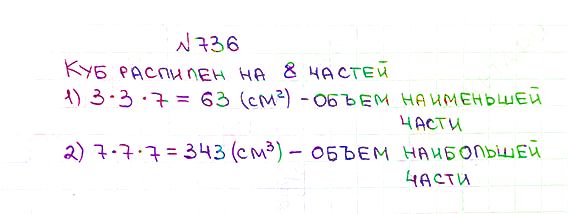 №736
КУБ РАСПИЛЕН НА 8 ЧАСТЕЙ
1) 3·3·7 = 63 (СМ²) - ОБЪЕМ НАИМЕНЬШЕЙ
ЧАСТИ
2) 7·7·7 = 343 (СМ³) - ОБЪЕМ НАИБОЛЬШЕЙ
ЧАСТИ